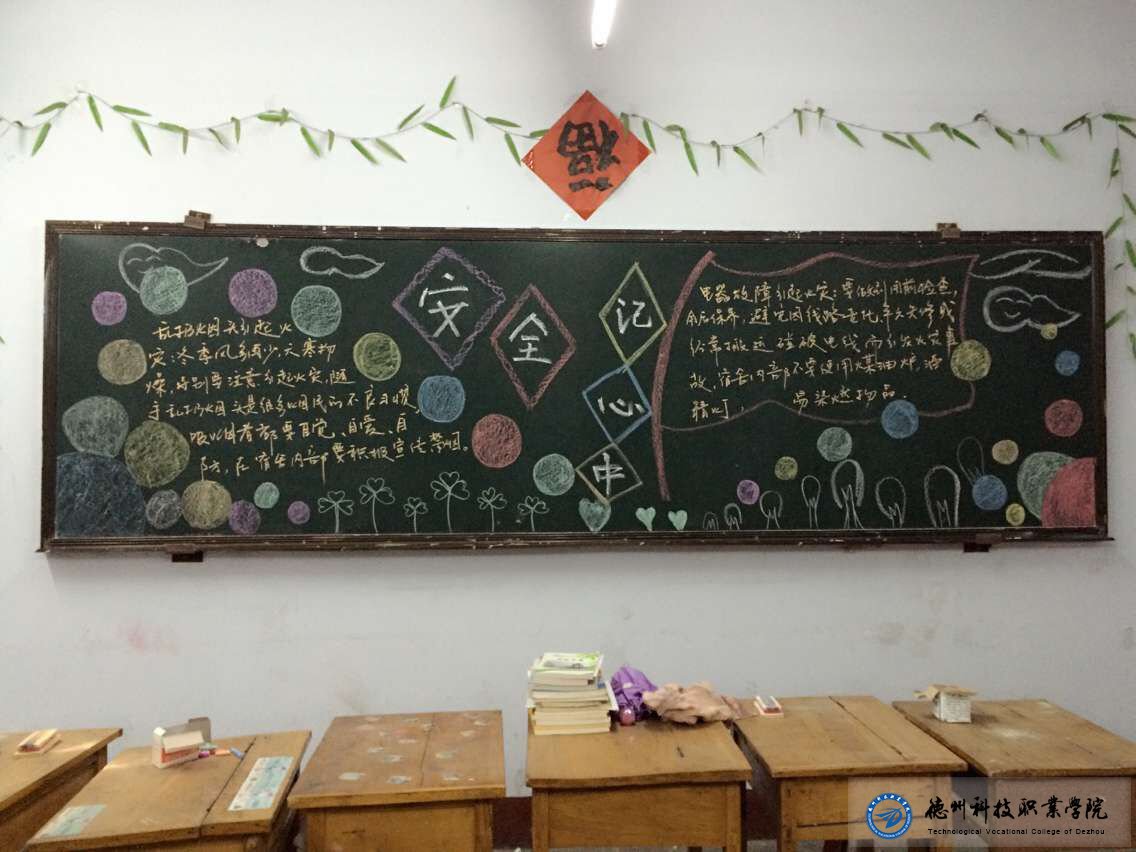 福
安全
记心中
乱扔烟头引起火
灾:冬季风多雨少,天寒物
燥,特别要注意引起火灾,随
手乱扔烟头是很多烟民的不良习惯,
吸烟者都要自觉、自爱、自
防,在宿舍内部要积极宣传禁烟。
电器故障引起火灾:要做到用前检查,
用后保养,避免因线路老化,年久失修或
经常搬运 磕破电线 而引发火灾事
故,宿舍内部不要使用煤油炉、酒
精灯, 易燃物品.
德州科技职业学院
Technological Vocational College of Dezhou